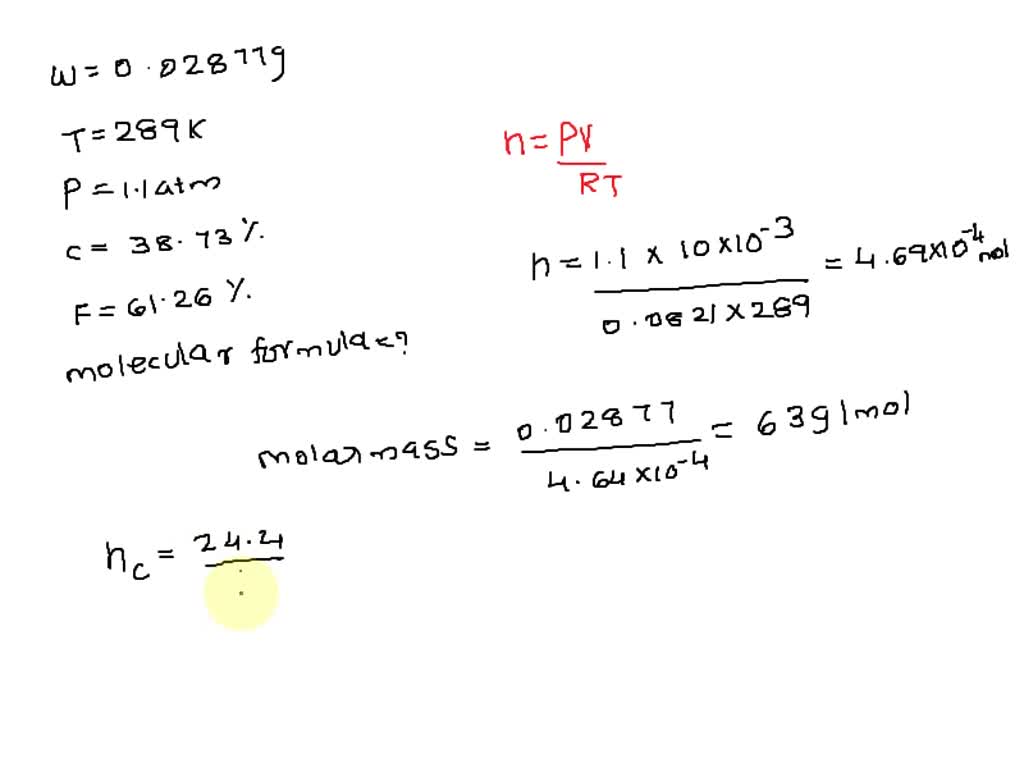 W = 0.02877g
T = 289K
P = 1.1atm
C = 38.73%.
F = 61.26%.
molecular formulae?
n = PV / RT
n = 1.1 × 10×10-3 / 0.0821×289 = 4.69×10-4 mol
molar mass = 0.02877 / 4.64×10-4 = 63g/mol
nC = 24.4